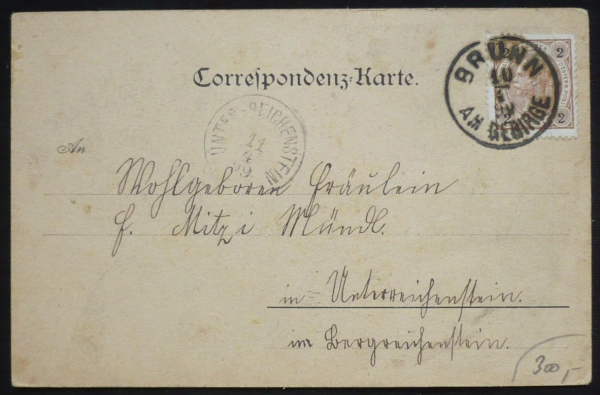 Correspondenz-Karte.
BRUNN
10
AM GEBIRGE
2
2
UNTER-REICHENSTEIN
11
4
99
An
Wohlgeboren Fräulein
f. Mitzi Mündl.
in Unterreichenstein.
im Bergreichenstein.
300,-